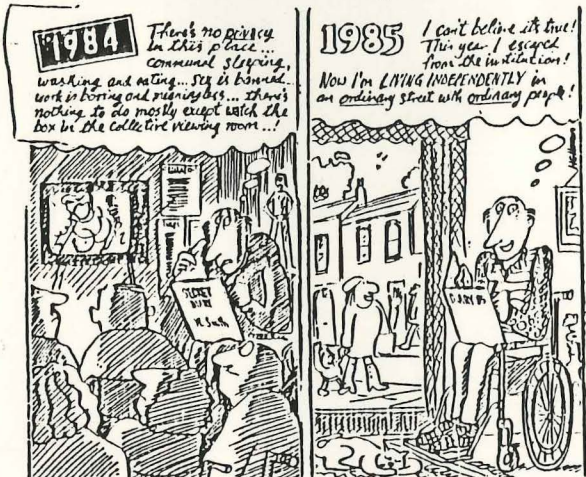 1984
There's no privacy
in this place...
communal sleeping,
washing and eating... Sex is banned...
work is boring and meaningless... there's
nothing to do mostly except watch the
box in the collective viewing room..!
SECRET
DIARY
W. Smith
1985
I can't believe it's true!
This year I escaped
from the institution!
NOW I'm LIVING INDEPENDENTLY in
an ordinary street with ordinary people!
DIARY 85